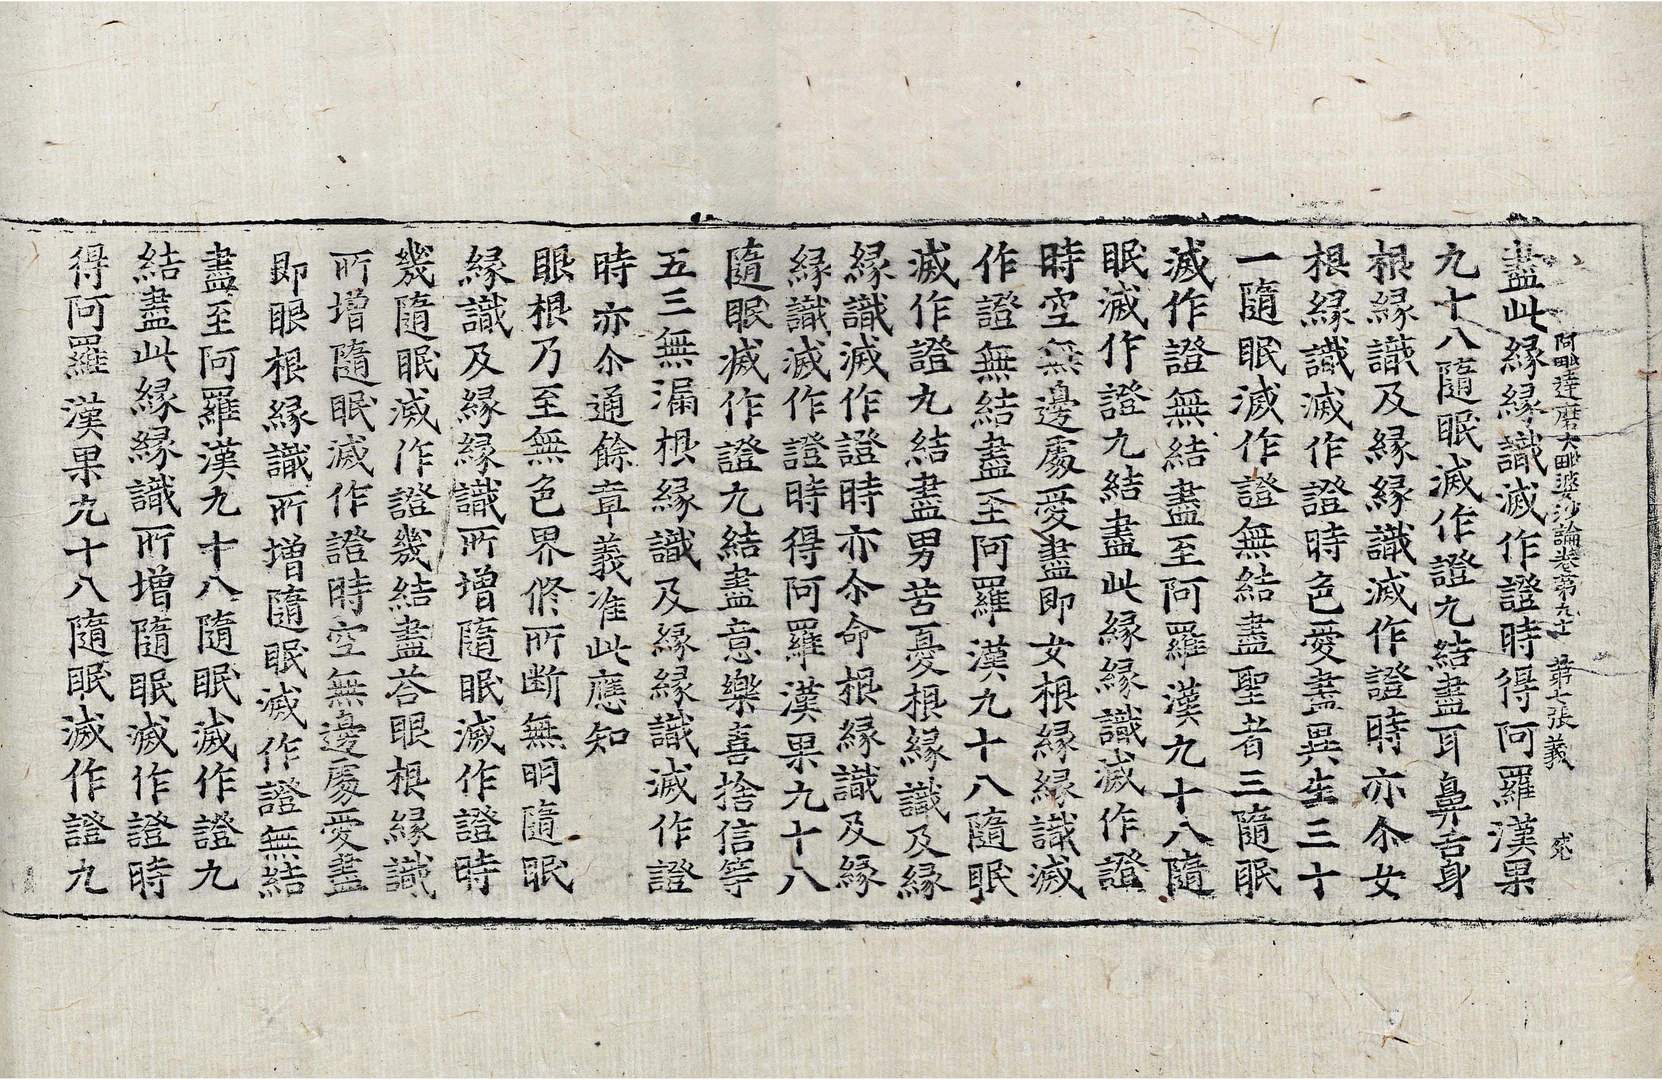 阿毗達磨大毗婆沙論卷第九十 第七張 義
盡此縁縁識滅作證時得阿羅漢果
九十八隨眠滅作證九結盡耳鼻舌身
根縁識及縁縁識滅作證時亦尒女
根縁識滅作證時色愛盡異生三十
一隨眠滅作證無結盡聖者三隨眠
滅作證無結盡至阿羅漢九十八隨
眠滅作證九結盡此縁縁識滅作證
時空無邊處愛盡即女根縁縁識滅
作證無結盡至阿羅漢九十八隨眠
滅作證九結盡男苦憂根縁識及縁
縁識滅作證時亦尒命根縁識及縁
縁識滅作證時得阿羅漢果九十八
隨眠滅作證九結盡意樂喜捨信等
五三無漏根縁識及縁縁識滅作證
時亦尒通餘章義准此應知
眼根乃至無色界修所断無明隨眠
縁識及縁縁識所增隨眠滅作證時
幾隨眠滅作證幾結盡荅眼根縁識
所增隨眠滅作證時空無邊處愛盡
即眼根縁識所增隨眠滅作證無結
盡至阿羅漢九十八隨眠滅作證九
結盡此縁縁識所增隨眠滅作證時
得阿羅漢果九十八隨眠滅作證九